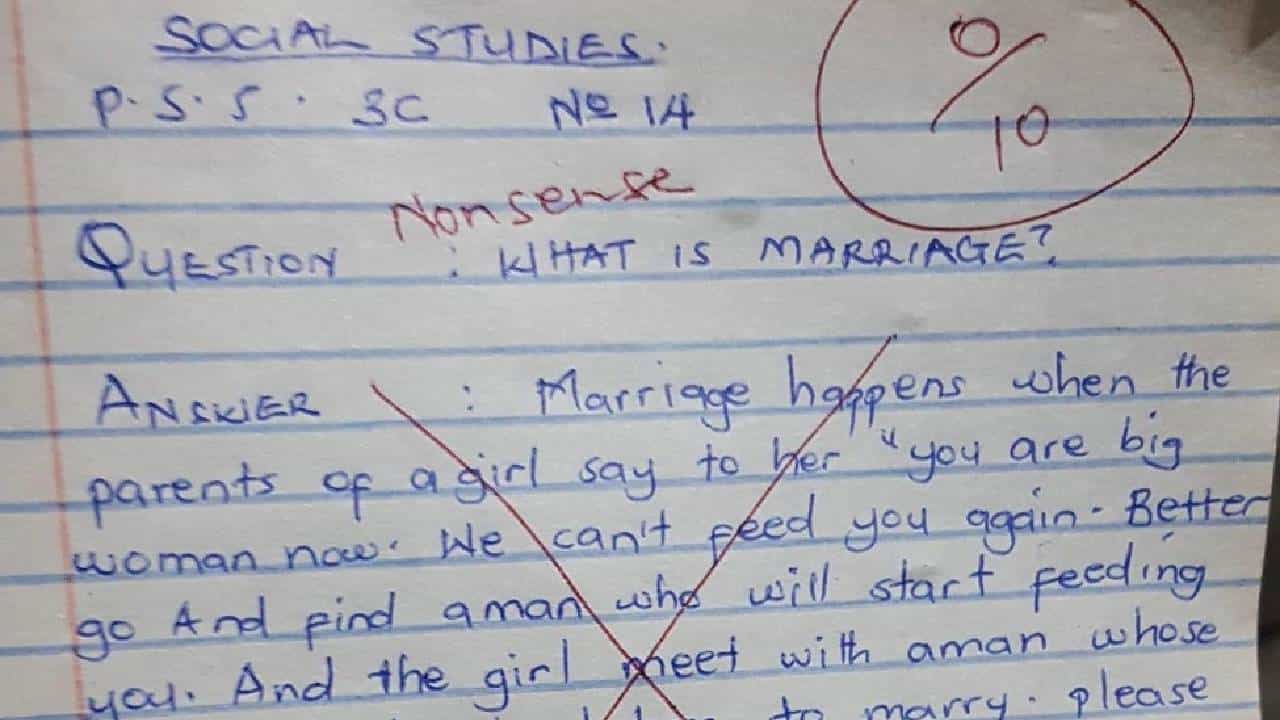 SOCIAL STUDIES.
P.S.S. 3C No 14
0/10
Nonsense
QUESTION : WHAT IS MARRIAGE?
ANSWER : Marriage happens when the
parents of a girl say to her "you are big
woman now. We can't feed you again. Better
go And find a man who will start feeding
you. And the girl meet with a man whose
to marry. please